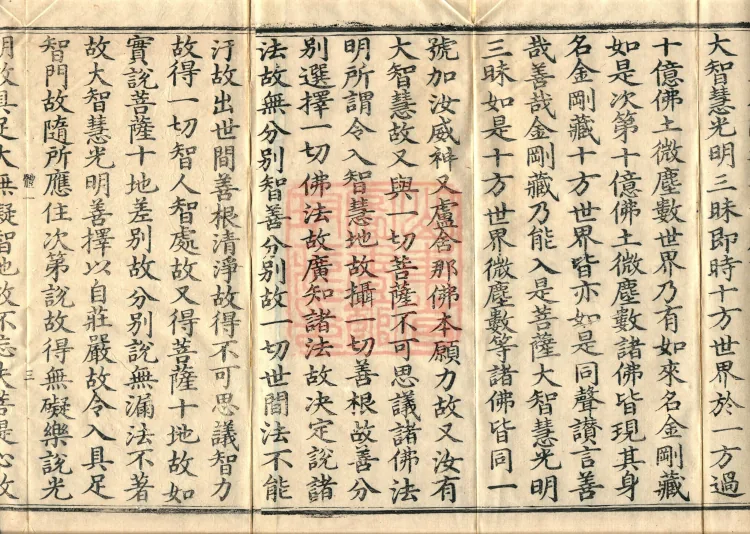 大智慧光明三昧即時十方世界於一方過
十億佛土微塵數世界乃有如來名金剛藏
如是次第十億佛土微塵數諸佛皆現其身
名金剛藏十方世界皆亦如是同聲讃言善
哉善哉金剛藏乃能入是菩薩大智慧光明
三昧如是十方世界微塵數等諸佛皆同一
號加汝威神又盧舍那佛本願力故又汝有
大智慧故又與一切菩薩不可思議諸佛法
明所謂令入智慧地故攝一切善根故善分
別選擇一切佛法故廣知諸法故決定說諸
法故無分別智善分別故一切世間法不能
汙故出世間善根清淨故得不可思議智力
故得一切智人智處故又得菩薩十地故如
實說菩薩十地差別故分別說無漏法不著
故大智慧光明善擇以自莊嚴故令入具足
智門故隨所應住次第說故得無礙樂說光
體一 三
明故具足大無礙智地故不忘失菩提心故